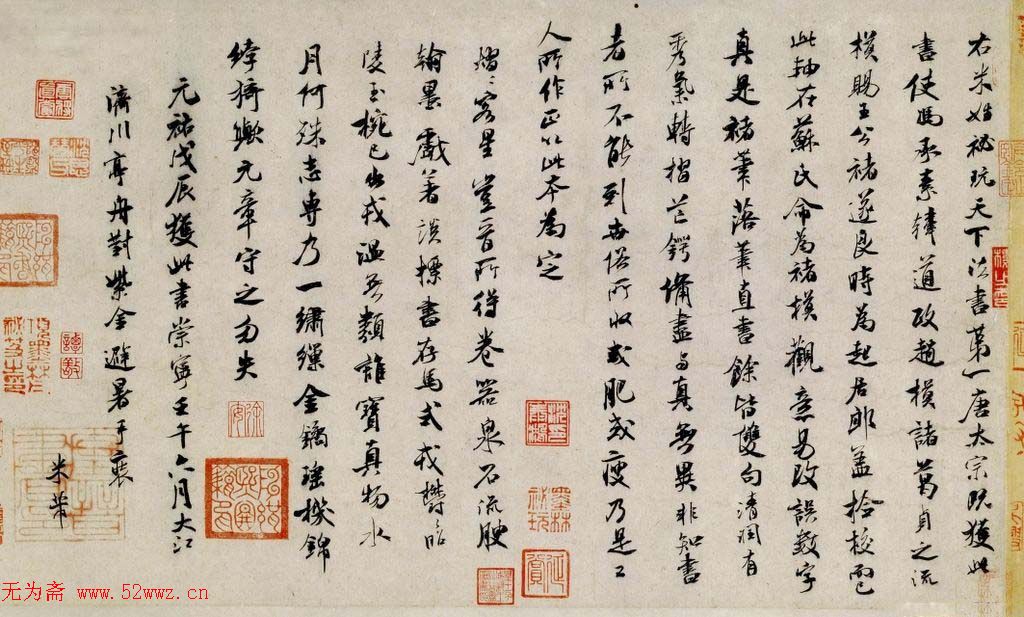 右米姓祕玩天下法書第一唐太宗既獲此
書使馮承素韓道政趙模諸葛貞之流
模賜王公褚遂良時為起居郎蓋撿校而已
此軸在蘇氏命為褚模觀意易改誤數字
真是褚筆落筆直書餘皆雙勾清潤有
秀氣轉摺芒鍔備盡與真無異非知書
者所不能到世俗所收或肥或瘦乃是工
人所作正以此本為定
熠〻客星豈晉所得卷器泉石流腴
翰墨戲著談標書存焉式戎鬱昭
陵玉椀已出戎溫無類誰寶真物水
月何殊志專乃一繡繅金鐍瑤機錦
綷猗歟元章守之勿失
元祐戊辰獲此書崇寧壬午六月大江
濟川亭舟對紫金避暑手裝
米芾
无为斋 www.52wwz.cn